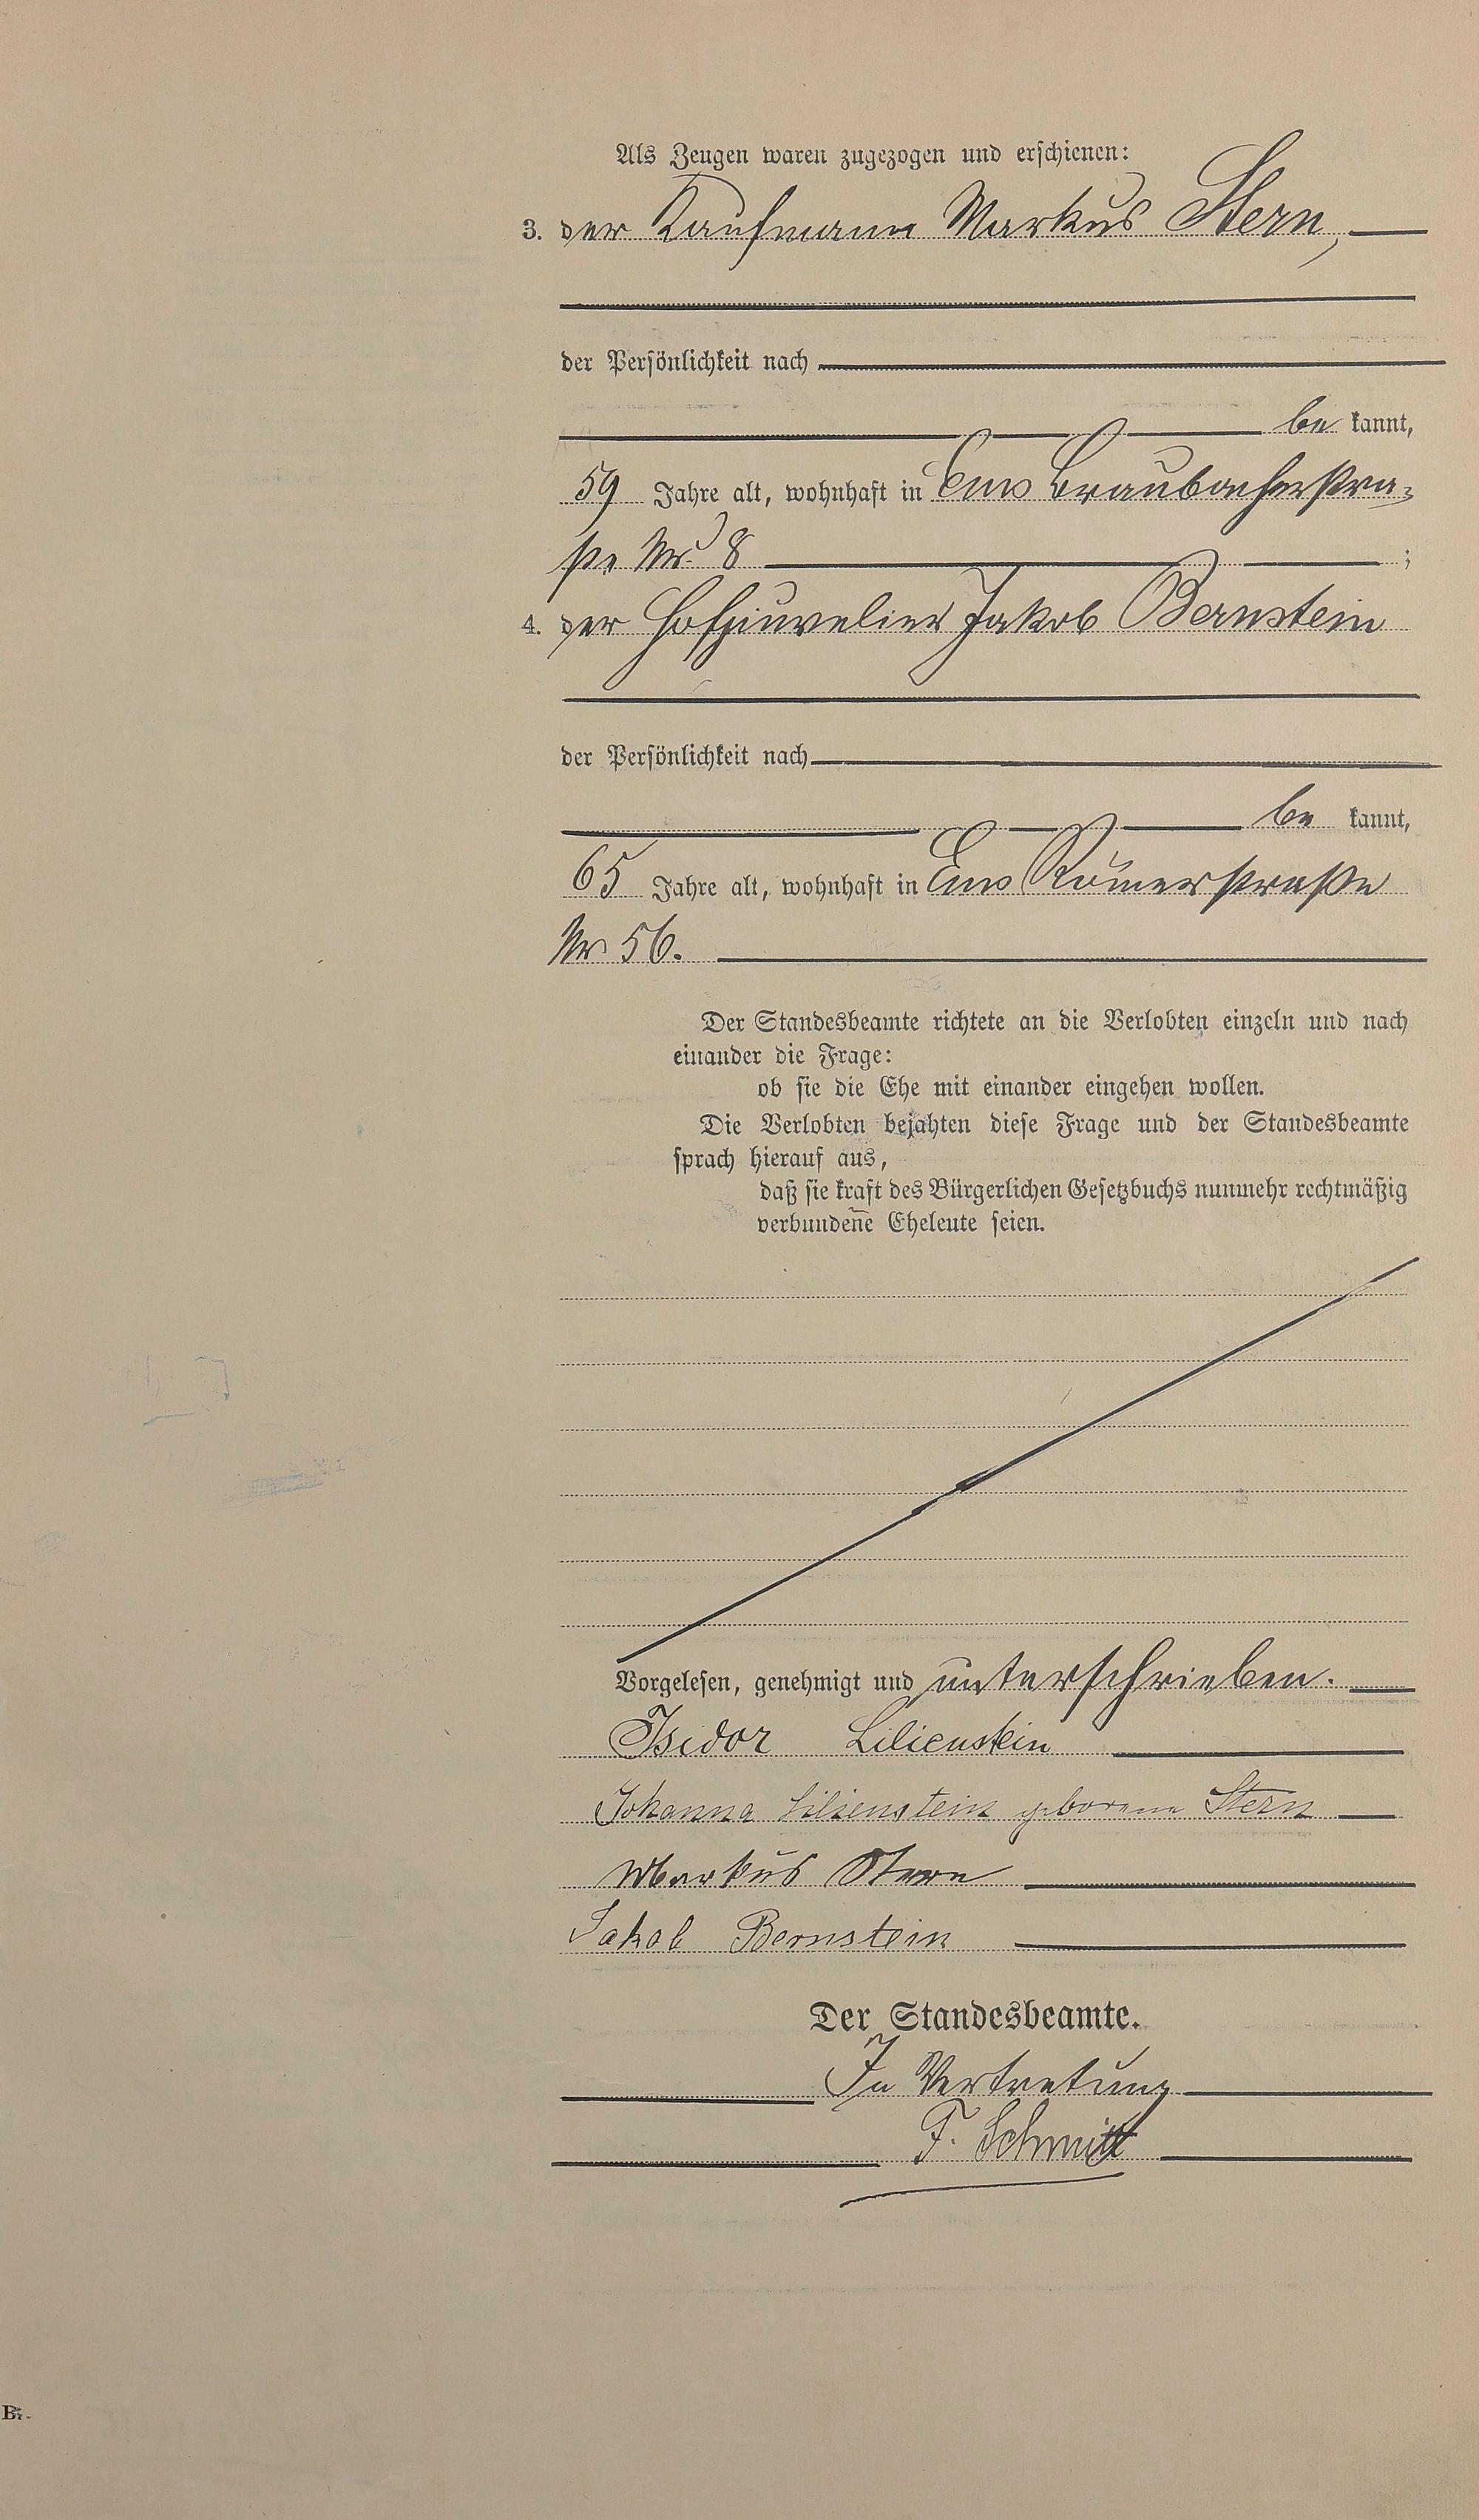 Als Zeugen waren zugezogen und erschienen:
3. der Kaufmann Markus Stern,
der Persönlichkeit nach
be kannt,
59 Jahre alt, wohnhaft in Ems Braubacherstra-
ße Nr. 8 ;
4. der Hofjuwelier Jakob Bernstein
der Persönlichkeit nach
be kannt,
65 Jahre alt, wohnhaft in Ems Römerstraße
Nr 56.
Der Standesbeamte richtete an die Verlobten einzeln und nach
einander die Frage:
ob sie die Ehe mit einander eingehen wollen.
Die Verlobten bejahten diese Frage und der Standesbeamte
sprach hierauf aus,
daß sie kraft des Bürgerlichen Gesetzbuchs nunmehr rechtmäßig
verbundene Eheleute seien.
Vorgelesen, genehmigt und unterschrieben.
Isidor Lilienstein
Johanna Lilienstein geborene Stern
Markus Stern
Jakob Bernstein
Der Standesbeamte.
In Vertretung
F. Schmitt